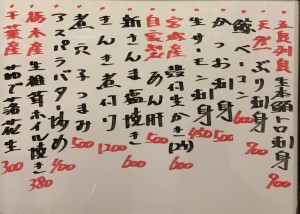 五島列島 生本鮪トロ刺身 900
天然 ぶり刺身 700
鯨ベーコン 600
かつお刺身 500
生サーモン刺身 450
宮城産 殻付生かき(2ヶ) 600
自家製 あん肝 500
新さんま塩焼き 600
きんき煮付け 1200
煮穴子つまみ 500
アスパラバター炒め 400
栃木産 生椎茸ホイル焼き 380
千葉産 茹で落花生 300